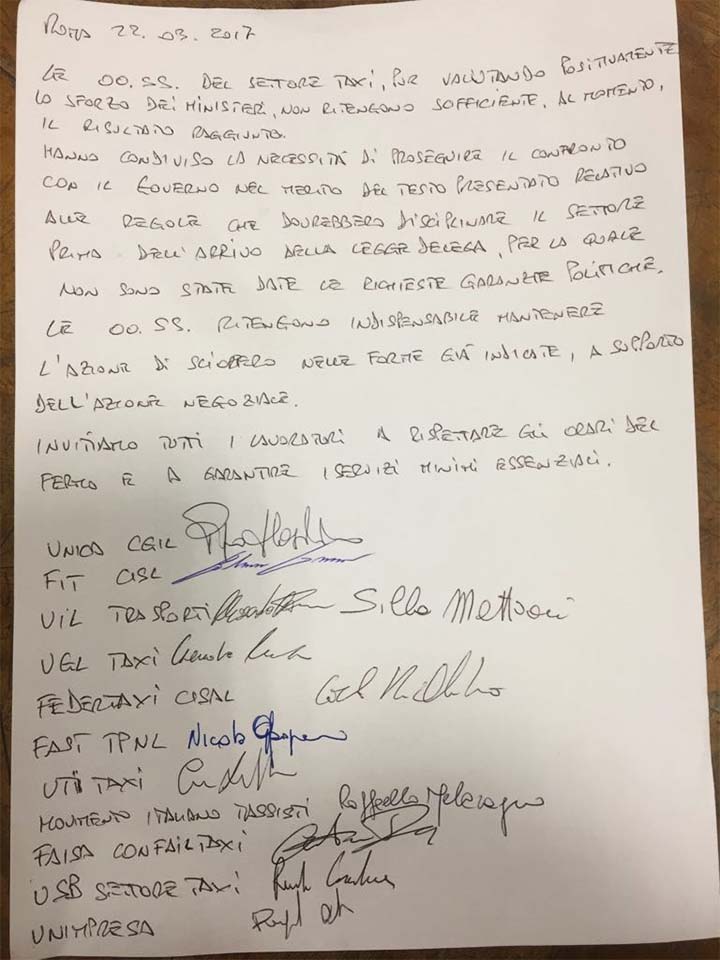 ROMA 22.03.2017
LE OO.SS. DEL SETTORE TAXI, PUR VALUTANDO POSITIVAMENTE
LO SFORZO DEI MINISTERI, NON RITENGONO SUFFICIENTE, AL MOMENTO,
IL RISULTATO RAGGIUNTO.
HANNO CONDIVISO LA NECESSITÀ DI PROSEGUIRE IL CONFRONTO
CON IL GOVERNO NEL MERITO DEL TESTO PRESENTATO RELATIVO
ALLE REGOLE CHE DOVREBBERO DISCIPLINARE IL SETTORE
PRIMA DELL'ARRIVO DELLA LEGGE DELEGA, PER LA QUALE
NON SONO STATE DATE LE RICHIESTE GARANZIE POLITICHE.
LE OO.SS. RITENGONO INDISPENSABILE MANTENERE
L'AZIONE DI SCIOPERO NELLE FORME GIÀ INDICATE, A SUPPORTO
DELL'AZIONE NEGOZIALE.
INVITIAMO TUTTI I LAVORATORI A RISPETTARE GLI ORARI DEL
FERMO E A GARANTIRE I SERVIZI MINIMI ESSENZIALI.
UNICA CGIL
FIT CISL
UIL TRASPORTI
UGL TAXI
FEDERTAXI CISAL
FAST TPNL Nicola
UTI TAXI
MOVIMENTO ITALIANO TASSISTI Raffaella
FAISA CONFAIL TAXI
USB SETTORE TAXI
UNIMPRESA